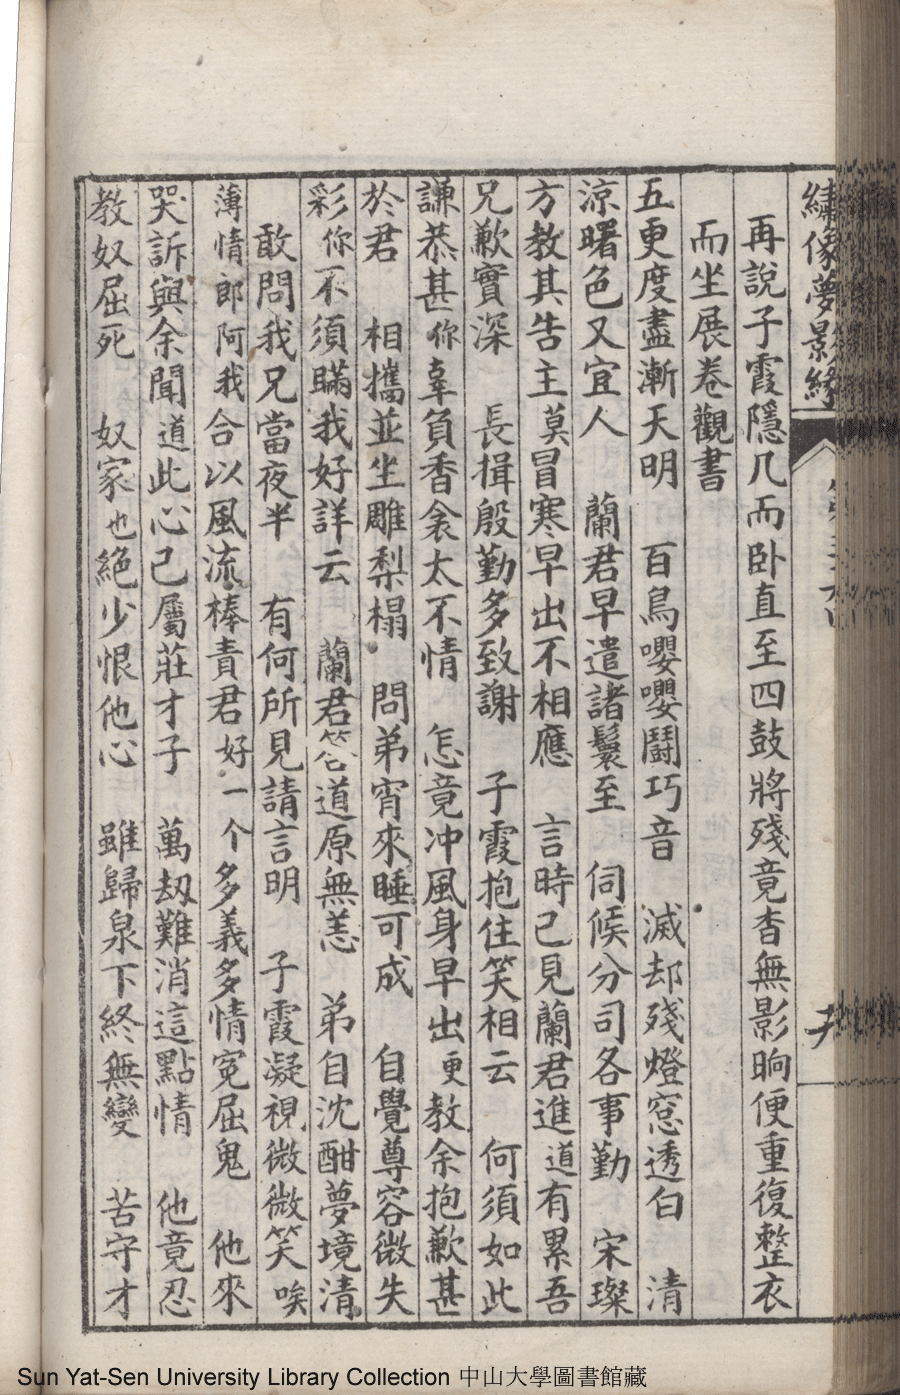 繡像夢影緣
再說子霞隱几而卧直至四鼓將殘竟杳無影晌便重復整衣
而坐展卷觀書
五更度盡漸天明　百鳥嚶嚶鬪巧音　滅却殘燈窓透白　清
涼曙色又宜人　蘭君早遣諸鬟至　伺候分司各事勤　宋璨
方教其告主莫冒寒早出不相應　言時己見蘭君進道有累吾
兄歉實深　長揖殷勤多致謝　子霞抱住笑相云　何須如此
謙恭甚你辜負香衾太不情　怎竟冲風身早出更教余抱歉甚
於君　相攜並坐雕梨榻　問弟宵來睡可成　自覺尊容微失
彩你不須瞞我好詳云　蘭君答道原無恙　弟自沈酣夢境清
敢問我兄當夜半　有何所見請言明　子霞凝視微微笑唉
薄情郎阿我合以風流棒責君好一个多義多情寃屈鬼　他來
哭訴與余聞道此心己屬莊才子　萬刼難消這點情　他竟忍
教奴屈死　奴家也絕少恨他心　雖歸泉下終無變　苦守才
Sun Yat-Sen University Library Collection 中山大學圖書館藏